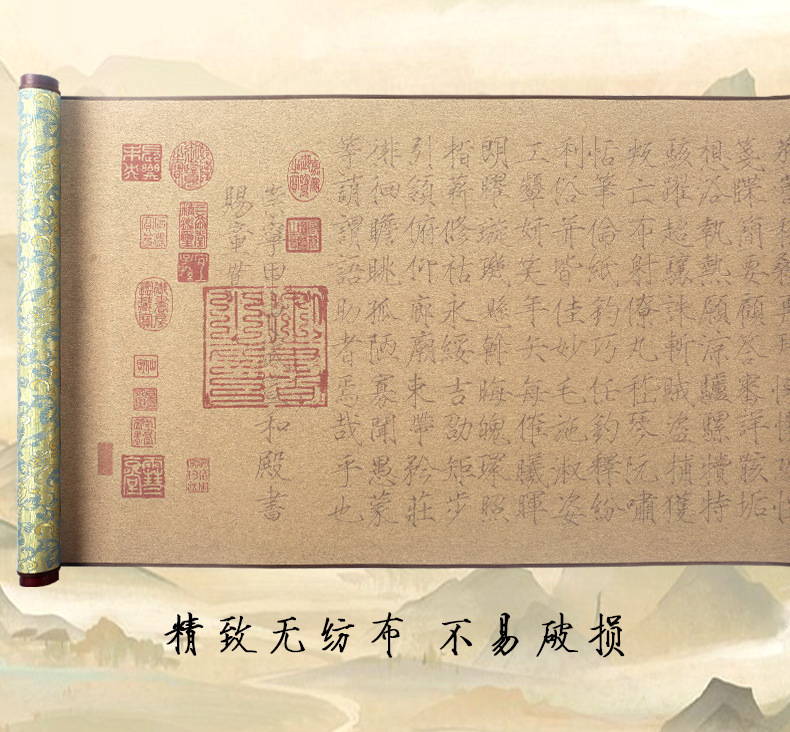 箋牒簡要顧答審詳骸垢
想浴執熱願涼驢騾犢特
駭躍超驤誅斬賊盜捕獲
叛亡布射僚丸嵇琴阮嘯
恬筆倫紙鈞巧任釣釋紛
利俗并皆佳妙毛施淑姿
工顰妍笑年矢每催曦暉
朗曜璇璣懸斡晦魄環照
指薪修祜永綏吉劭矩步
引領俯仰廊廟束帶矜莊
徘徊瞻眺孤陋寡聞愚蒙
等誚謂語助者焉哉乎也
崇寧甲 和殿書
賜童貫
精致无纺布 不易破损